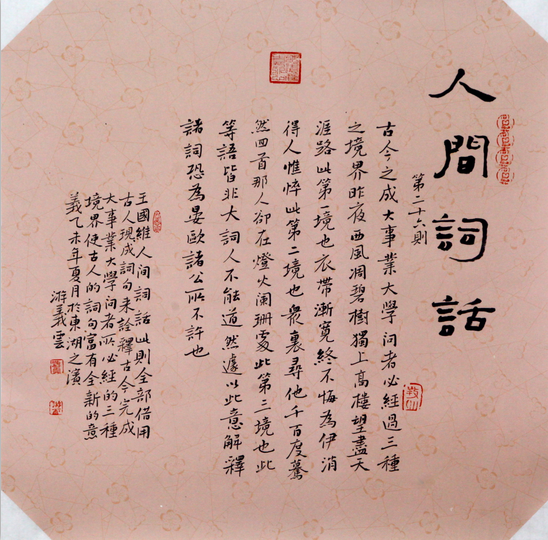 人間詞話
第二十六則
古今之成大事業大学问者必經過三種
之境界昨夜西風凋碧樹獨上高樓望盡天
涯路此第一境也衣帶漸寬終不悔為伊消
得人憔悴此第二境也衆裏尋他千百度驀
然回首那人卻在燈火闌珊處此第三境也此
等語皆非大詞人不能道然遽以此意解釋
諸詞恐為晏歐諸公所不許也
王國維人间詞話此則全部借用
古人現成詞句来詮釋古今完成
大事業大學问者所必經的三種
境界使古人的詞句富有全新的意
義乙未年夏月於東湖之濱
游義雲